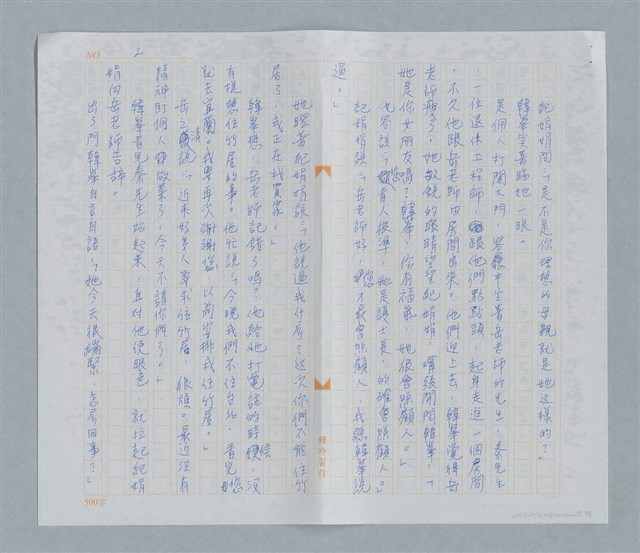 NO 2
紀娟娟問：「是不是你理想的母親就是她這樣的？」
韓摯笑著睇她一眼。
是個人打開大門，客廳中坐著岳老師的先生，秦先生
，一位退休工程師，跟他們點點頭，起身走進一個房間
，不久他跟岳老師由房間出來。他們迎上去。韓摯覺得岳
老師瘦了，她敏銳的眼睛望望紀娟娟，嘴張開問韓摯：「
她是你女朋友嗎？韓摯，你有福氣，她很會照顧人。」
他答說：「您看人很準，她是護士長，的確會照顧人。」
紀娟娟說：「岳老師好，您才最會照顧人，我聽韓摯說
過。」
她瞪著紀娟娟說：「他說過我什麼？這次你們不能住竹
居了，我正在找買家。」
韓摯想，岳老師記錯了嗎？他給她打電話的時候，沒
有提想住竹居的事。他忙說：「今晚我們不住台北，看完您
就去宜蘭。我要再次謝謝您以前安排我住竹居。」
岳立清說：「近來好多人要求住竹居，很煩。最近沒有
精神盯個人做菜了，今天不請你們了。」
韓摯看見秦先生站起來，並對他使眼色，就拉起紀娟
娟向岳老師告辭。
出了門韓摯自言自語：「她今天很繃緊，怎麼回事？」
鍾玲寫作
500字